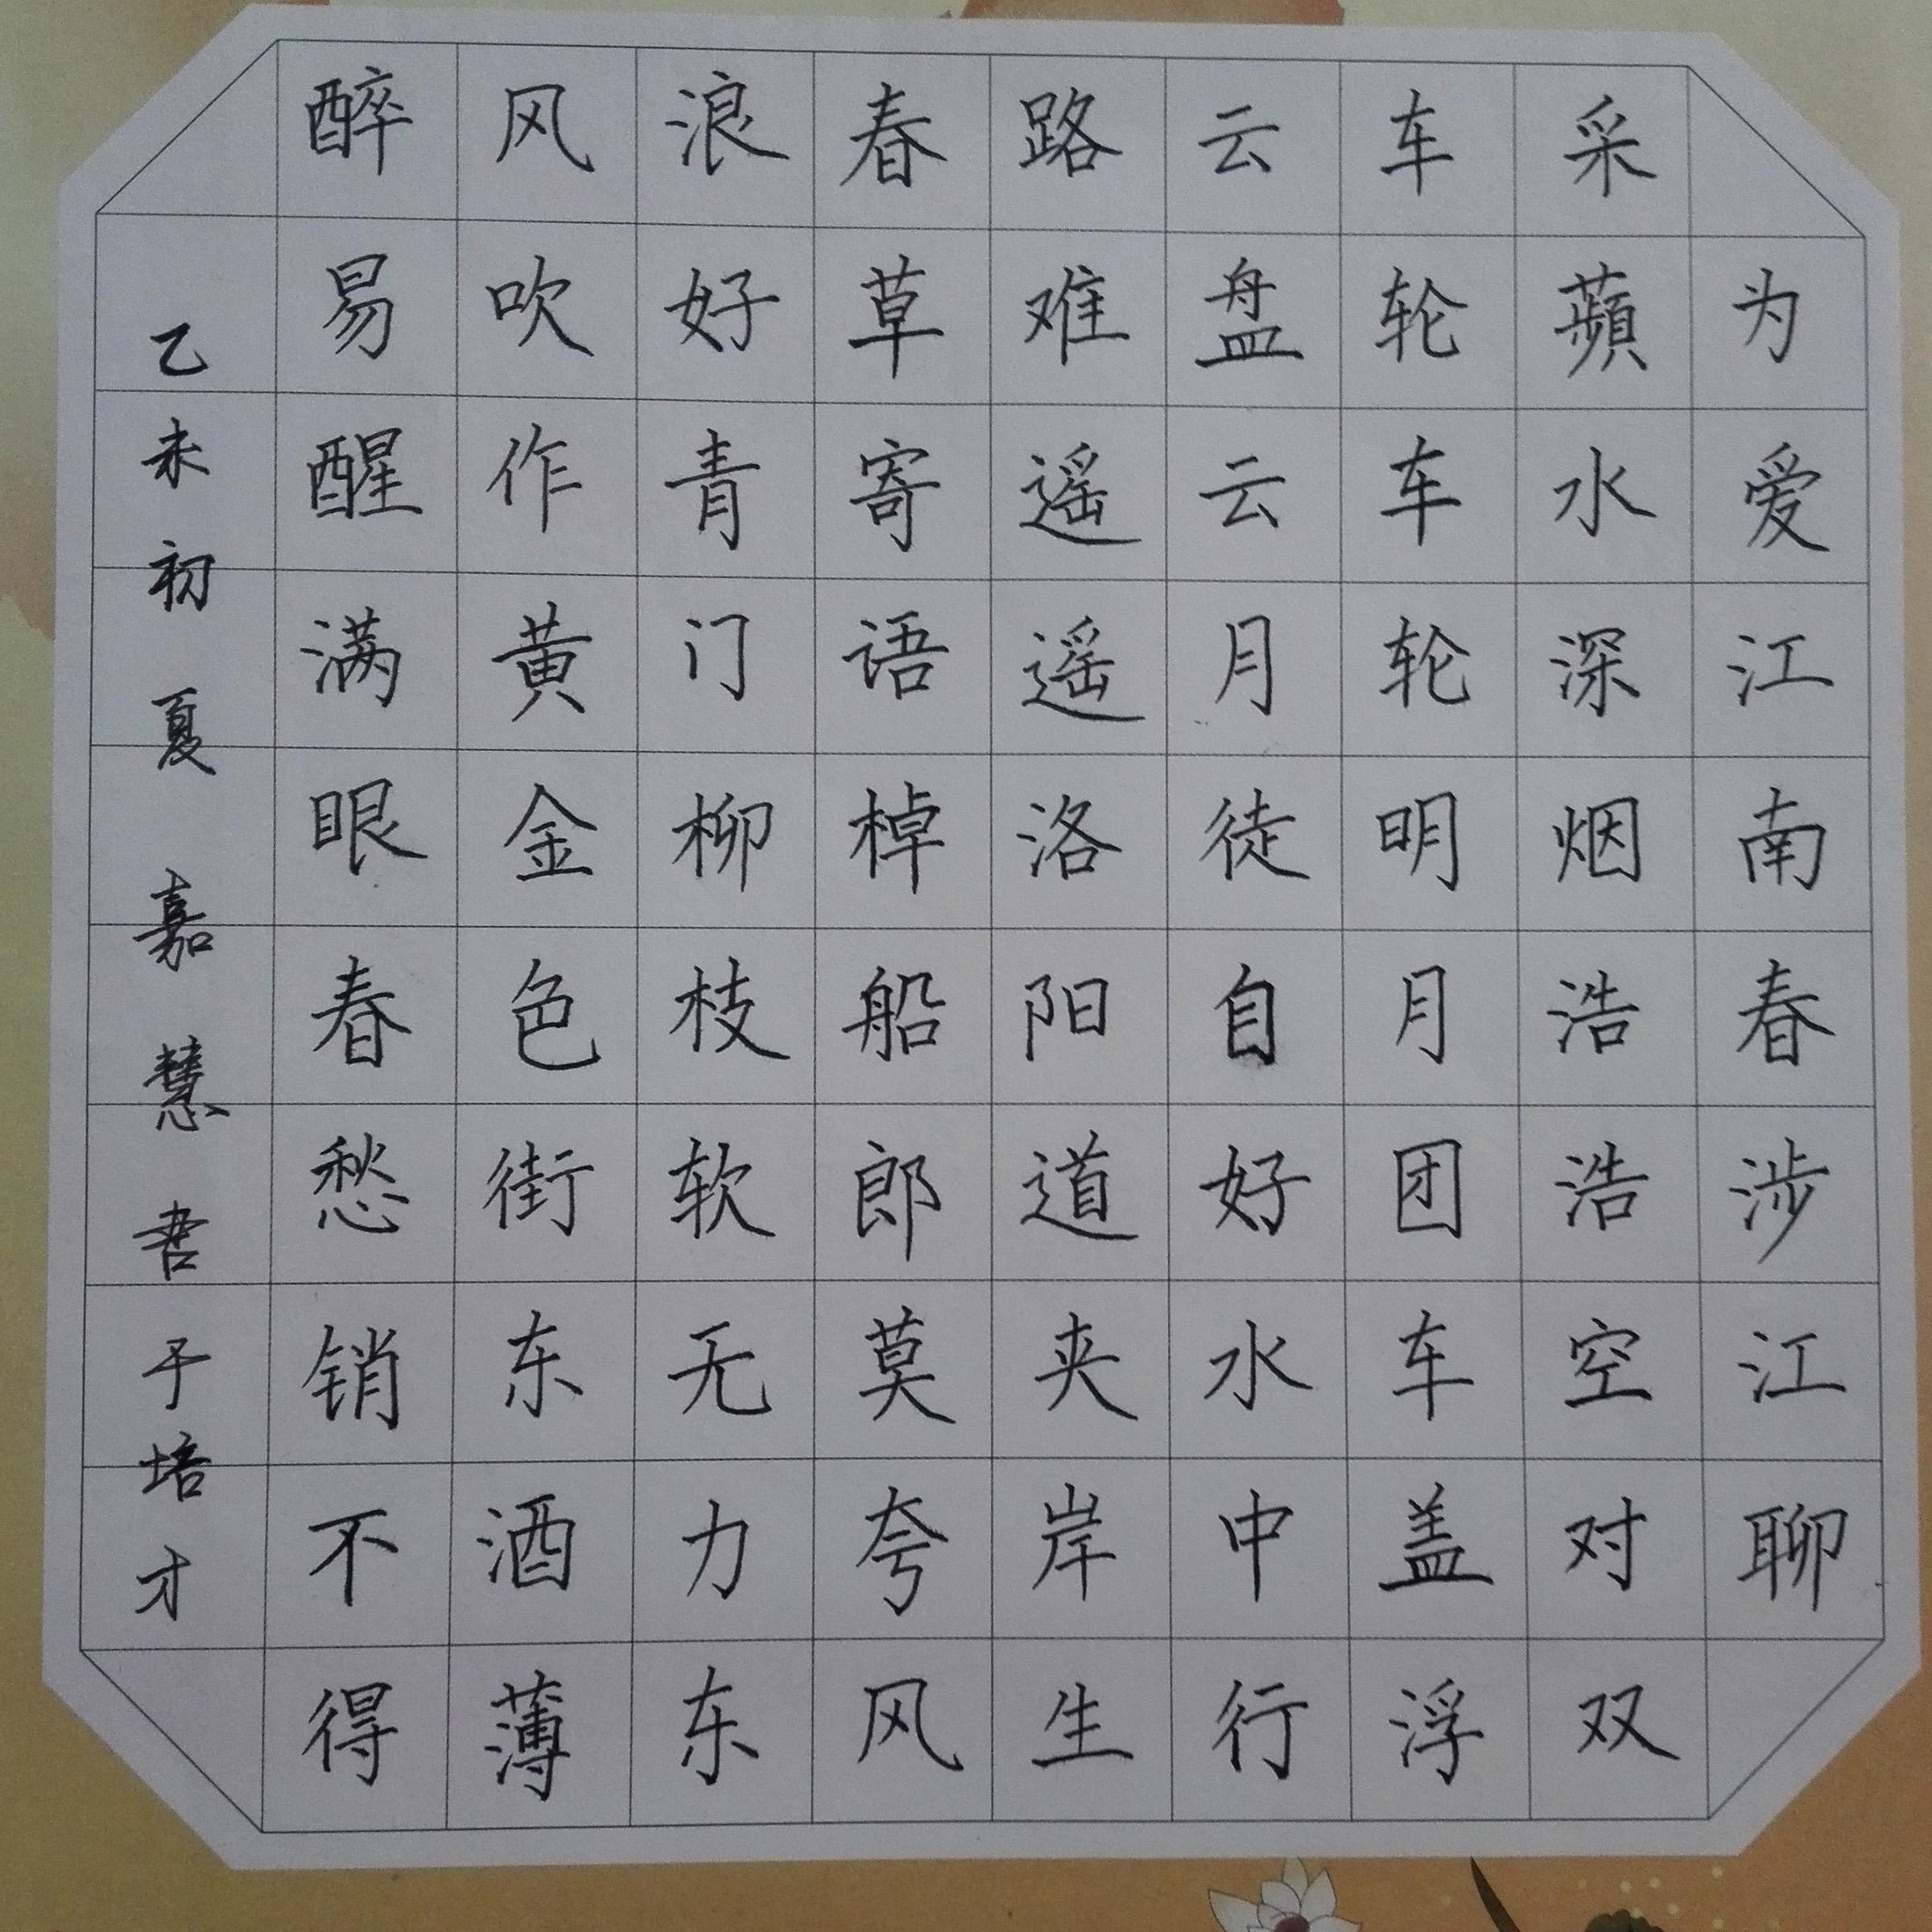 为爱江南春涉江聊
采蘋水深烟浩浩空对双
车轮车轮明月团车盖浮
云盘云月徒自好水中行
路难遥遥洛阳道夹岸生
春草寄语棹船郎莫夸风
浪好青门柳枝软无力东
风吹作黄金色街东酒薄
醉易醒满眼春愁销不得
乙未初夏嘉慧书于培才